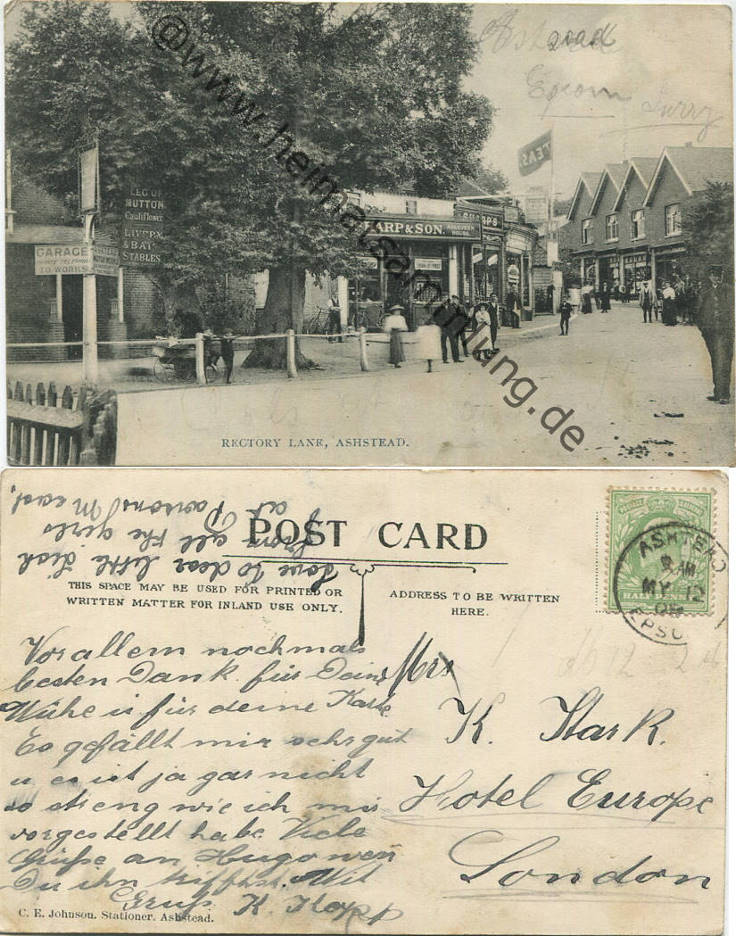 Ashstead
Epsom Surry
@www.heimatsammlung.de
TEAS
LEG OF
MUTTON
Cauliflower
LIVERY
& BAIT
STABLES
GARAGE
TO WORKS
HARP & SON.
SHARPS
RECTORY LANE, ASHSTEAD.
Love to dear little Dick
from all the girls
at Parsons Mead,
POST CARD
THIS SPACE MAY BE USED FOR PRINTED OR
WRITTEN MATTER FOR INLAND USE ONLY.
ADDRESS TO BE WRITTEN
HERE.
HALFPENNY
ASHTEAD
MY 12
EPSO
Vor allem nochmals
besten Dank für Deine
Mühe u für deine Karte
Es gefällt mir sehr gut
u es ist ja gar nicht
so streng wie ich mir
vorgestellt habe Viele
Grüße an Hugo wen
Du ihn triffst. Mit
Gruss K. Kopp
Mrs
K. Stark.
Hotel Europe
London
C. E. Johnson. Stationer. Ashstead.